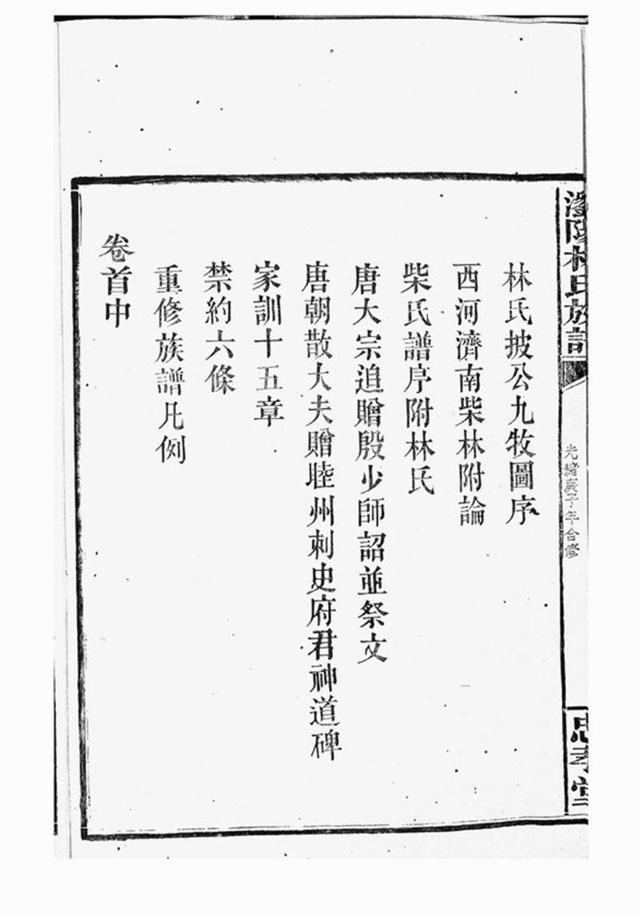 瀏陽林氏族譜
光緒庚子年合修
忠孝堂
林氏披公九牧圖序
西河濟南柴林附論
柴氏譜序附林氏
唐大宗追贈殷少師詔並祭文
唐朝散大夫贈睦州刺史府君神道碑
家訓十五章
禁約六條
重修族譜凡例
卷首中